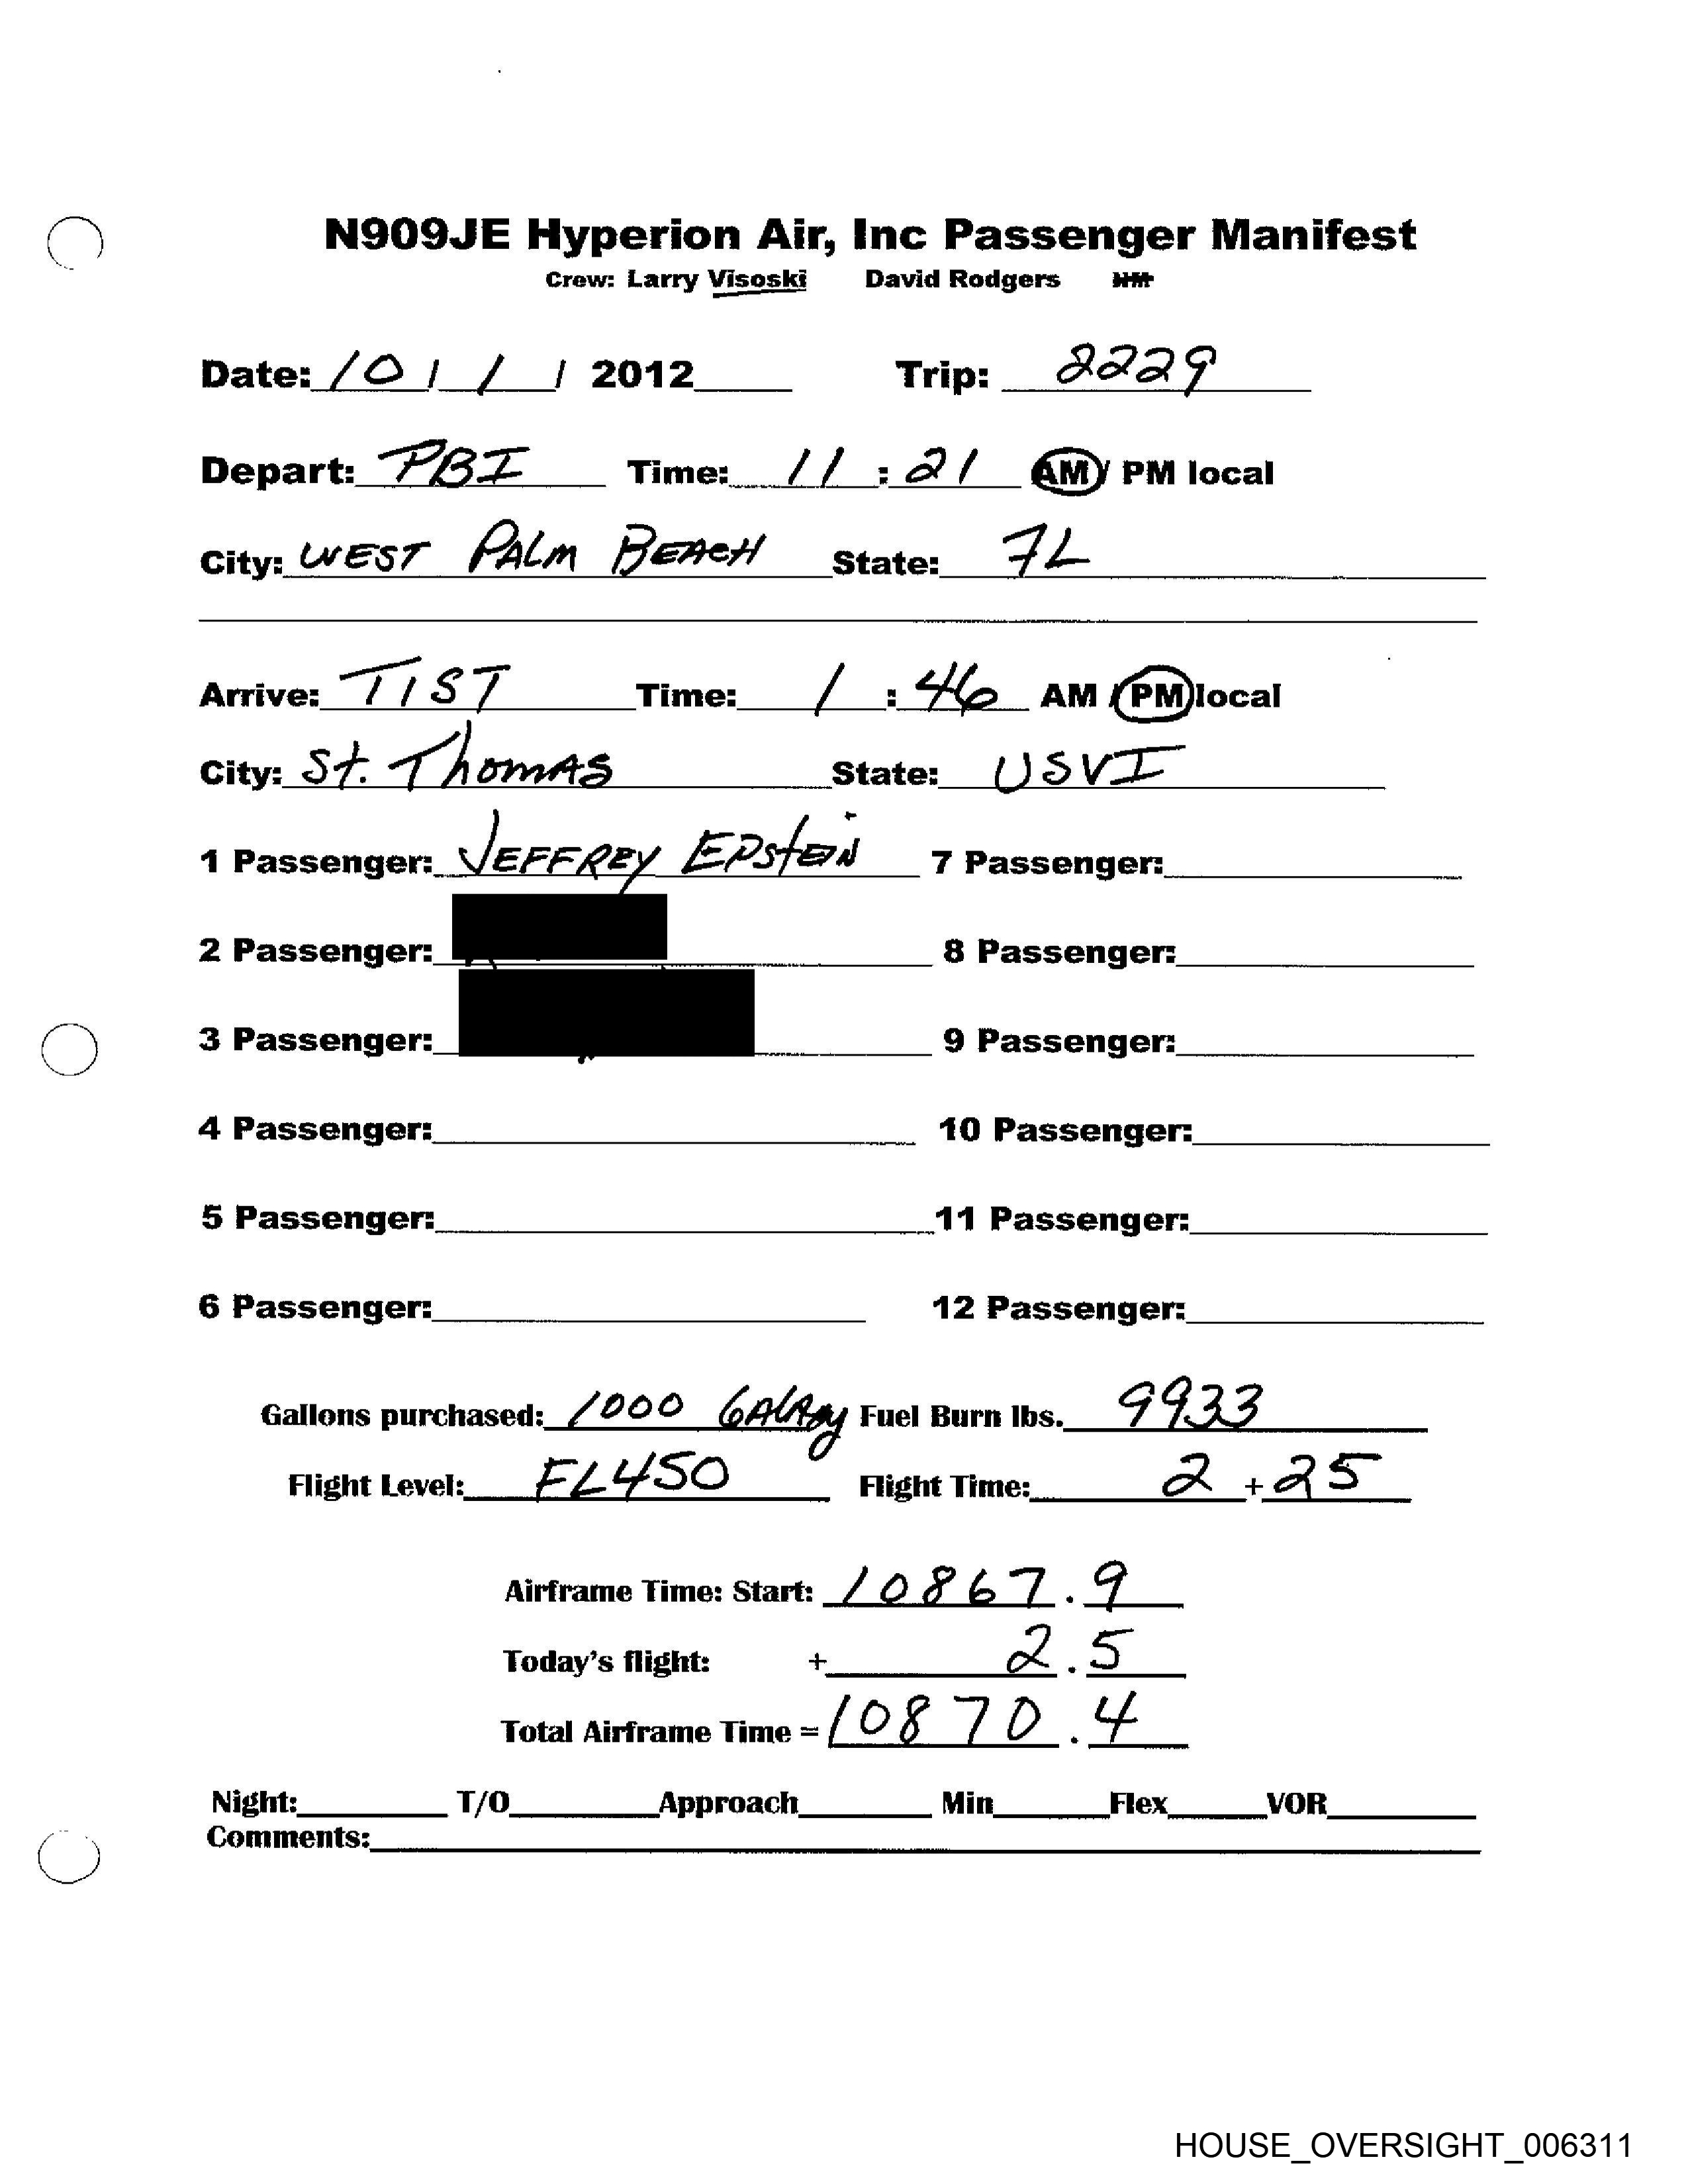 N909JE Hyperion Air, Inc Passenger Manifest
Crew: Larry Visoski David Rodgers
Date: 10 / 1 / 2012 Trip: 2229
Depart: PBI Time: 11 : 21 AM / PM local
City: WEST PALM BEACH State: FL
Arrive: TIST Time: 1 : 46 AM / PM local
City: St. Thomas State: USVI
1 Passenger: JEFFREY EPstEIN 7 Passenger:
2 Passenger: 8 Passenger:
3 Passenger: 9 Passenger:
4 Passenger: 10 Passenger:
5 Passenger: 11 Passenger:
6 Passenger: 12 Passenger:
Gallons purchased: 1000 GALAxy Fuel Burn lbs. 9933
Flight Level: FL450 Flight Time: 2 + 25
Airframe Time: Start: 10867.9
Today's flight: + 2.5
Total Airframe Time = 10870.4
Night: T/O Approach Min Flex VOR
Comments:
HOUSE_OVERSIGHT_006311